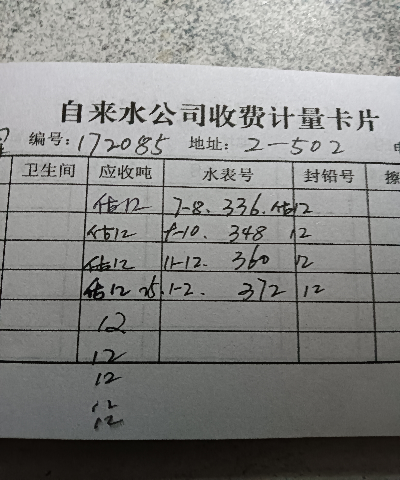 自来水公司收费计量卡片
编号:172085 地址:2-502
卫生间 应收吨 水表号 封铅号
估12 7-8. 336. 估12
估12 9-10. 348 12
估12 11-12. 360 12
估12 25.1-2. 372 12
12
12
12
12
12